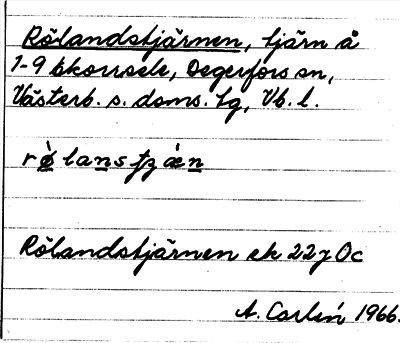 Rölandstjärnen, tjärn å
1-9 Skorrsele, Degerfors sn,
Västerb. s. doms. tg, Vb. l.
Rölandstjärnen ek 22 J 0c
A. Carlén 1966.